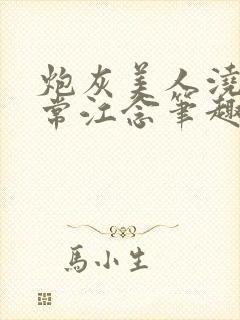 炮灰美人澆
常江念筆趣
馬小生